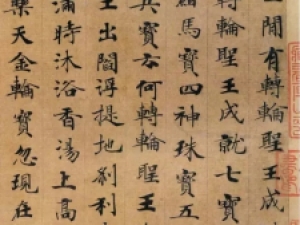 間有轉輪聖王成
轉輪聖王成就七寶
紺馬寶四神珠寶五
兵寶云何轉輪聖王
王出閻浮提地剎利
滿時沐浴香湯上高
樂天金輪寶忽現在